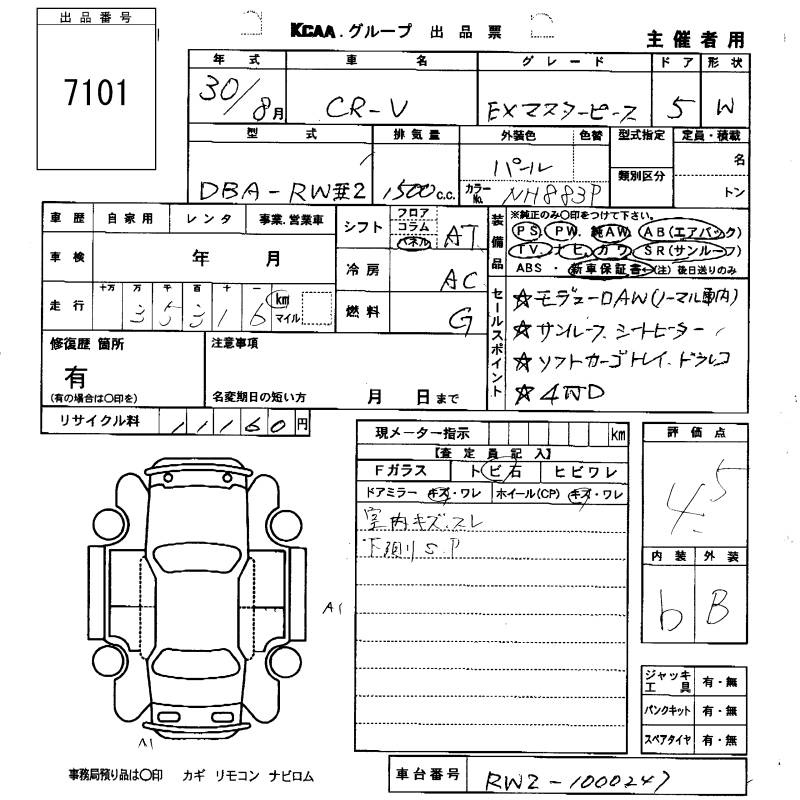 出品番号
7101
KCAA.グループ 出品票
主催者用
年式 車名 グレード ドア 形状
30/8月 CR-V EXマスターピース 5 W
型式 排気量 外装色 色替 型式指定 定員・積載
DBA-RW 2 1500c.c. パール 類別区分 名
カラーNo. NH883P トン
車歴 自家用 レンタ 事業.営業車
車検 年 月
走行 十万 万 千 百 十 一 km マイル
3 5 3 1 6
シフト フロア コラム パネル AT
冷房 AC
燃料 G
装備品
※純正のみ〇印をつけて下さい。
PS. PW. 純AW. AB(エアバック)
TV. ナビ. カワ. SR(サンルーフ)
ABS・新車保証書←(注)後日送りのみ
セールスポイント
☆モデューロAW(ノーマル車内)
☆サンルーフ.シートヒーター
☆ソフトカーゴトレイ.ドラレコ
☆4WD
修復歴 箇所
有
(有の場合は〇印を)
注意事項
名変期日の短い方 月 日まで
リサイクル料 11160円
現メーター指示 km
【査定員記入】
Fガラス トビ石 ヒビワレ
ドアミラー キズ・ワレ ホイール(CP) キズ・ワレ
室内キズ.スレ
下廻りS.P
評価点
4.5
内装 外装
b B
A1
A1
ジャッキ工具 有・無
パンクキット 有・無
スペアタイヤ 有・無
事務局預り品は〇印 カギ リモコン ナビロム
車台番号 RW2-1000247